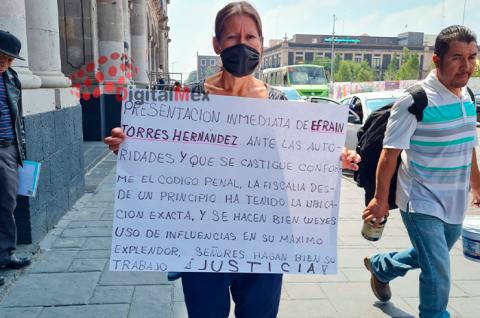 DigitalMex
PRESENTACIÓN INMEDIATA DE EFRAIN
TORRES HERNÁNDEZ. ANTE LAS AUTO-
RIDADES Y QUE SE CASTIGUE CONFOR-
ME EL CODIGO PENAL, LA FISCALIA DES-
DE UN PRINCIPIO HA TENIDO LA UBI-
CACION EXACTA, Y SE HACEN BIEN WEYES
USO DE INFLUENCIAS EN SU MÁXIMO
EXPLENDOR, SEÑORES HAGAN BIEN SU
TRABAJO ¡JUSTICIA!